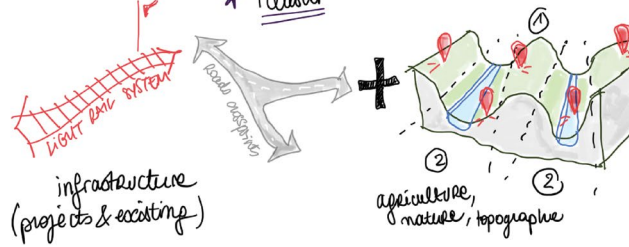 LIGHT RAIL SYSTEM
Roads
+
1
2
2
infrastructure
(projects & existing)
agriculture,
nature, topographie